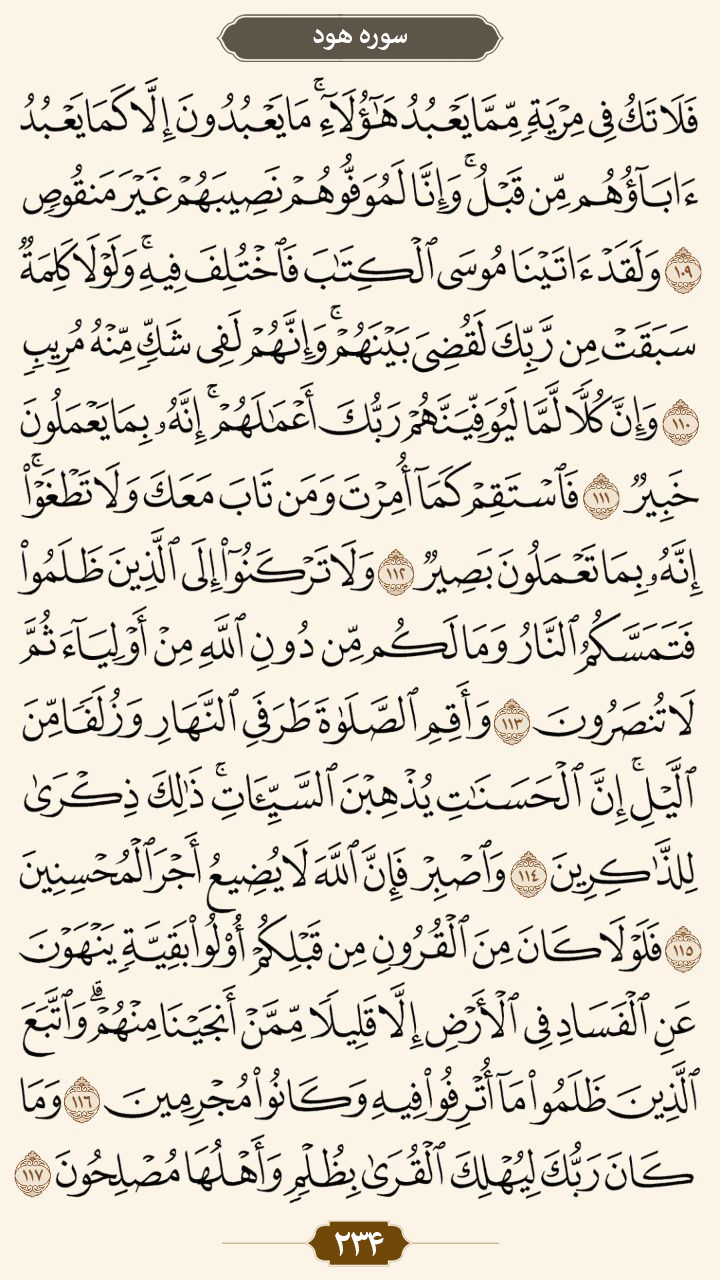 سوره هود
فَلَا تَكُ فِى مِرْيَةٍ مِّمَّا يَعْبُدُ هَٰٓؤُلَآءِ ۚ مَا يَعْبُدُونَ إِلَّا كَمَا يَعْبُدُ
ءَابَآؤُهُم مِّن قَبْلُ ۚ وَإِنَّا لَمُوَفُّوهُمْ نَصِيبَهُمْ غَيْرَ مَنقُوصٍ
١٠٩ وَلَقَدْ ءَاتَيْنَا مُوسَى ٱلْكِتَٰبَ فَٱخْتُلِفَ فِيهِ ۚ وَلَوْلَا كَلِمَةٌ
سَبَقَتْ مِن رَّبِّكَ لَقُضِىَ بَيْنَهُمْ ۚ وَإِنَّهُمْ لَفِى شَكٍّ مِّنْهُ مُرِيبٍ
١١٠ وَإِنَّ كُلًّا لَّمَّا لَيُوَفِّيَنَّهُمْ رَبُّكَ أَعْمَٰلَهُمْ ۚ إِنَّهُۥ بِمَا يَعْمَلُونَ
خَبِيرٌ ١١١ فَٱسْتَقِمْ كَمَآ أُمِرْتَ وَمَن تَابَ مَعَكَ وَلَا تَطْغَوْا۟ ۚ
إِنَّهُۥ بِمَا تَعْمَلُونَ بَصِيرٌ ١١٢ وَلَا تَرْكَنُوٓا۟ إِلَى ٱلَّذِينَ ظَلَمُوا۟
فَتَمَسَّكُمُ ٱلنَّارُ وَمَا لَكُم مِّن دُونِ ٱللَّهِ مِنْ أَوْلِيَآءَ ثُمَّ
لَا تُنصَرُونَ ١١٣ وَأَقِمِ ٱلصَّلَوٰةَ طَرَفَىِ ٱلنَّهَارِ وَزُلَفًا مِّنَ
ٱلَّيْلِ ۚ إِنَّ ٱلْحَسَنَٰتِ يُذْهِبْنَ ٱلسَّيِّـَٔاتِ ۚ ذَٰلِكَ ذِكْرَىٰ
لِلذَّٰكِرِينَ ١١٤ وَٱصْبِرْ فَإِنَّ ٱللَّهَ لَا يُضِيعُ أَجْرَ ٱلْمُحْسِنِينَ
١١٥ فَلَوْلَا كَانَ مِنَ ٱلْقُرُونِ مِن قَبْلِكُمْ أُو۟لُوا۟ بَقِيَّةٍ يَنْهَوْنَ
عَنِ ٱلْفَسَادِ فِى ٱلْأَرْضِ إِلَّا قَلِيلًا مِّمَّنْ أَنجَيْنَا مِنْهُمْ ۗ وَٱتَّبَعَ
ٱلَّذِينَ ظَلَمُوا۟ مَآ أُتْرِفُوا۟ فِيهِ وَكَانُوا۟ مُجْرِمِينَ ١١٦ وَمَا
كَانَ رَبُّكَ لِيُهْلِكَ ٱلْقُرَىٰ بِظُلْمٍ وَأَهْلُهَا مُصْلِحُونَ ١١٧
۲۳۴